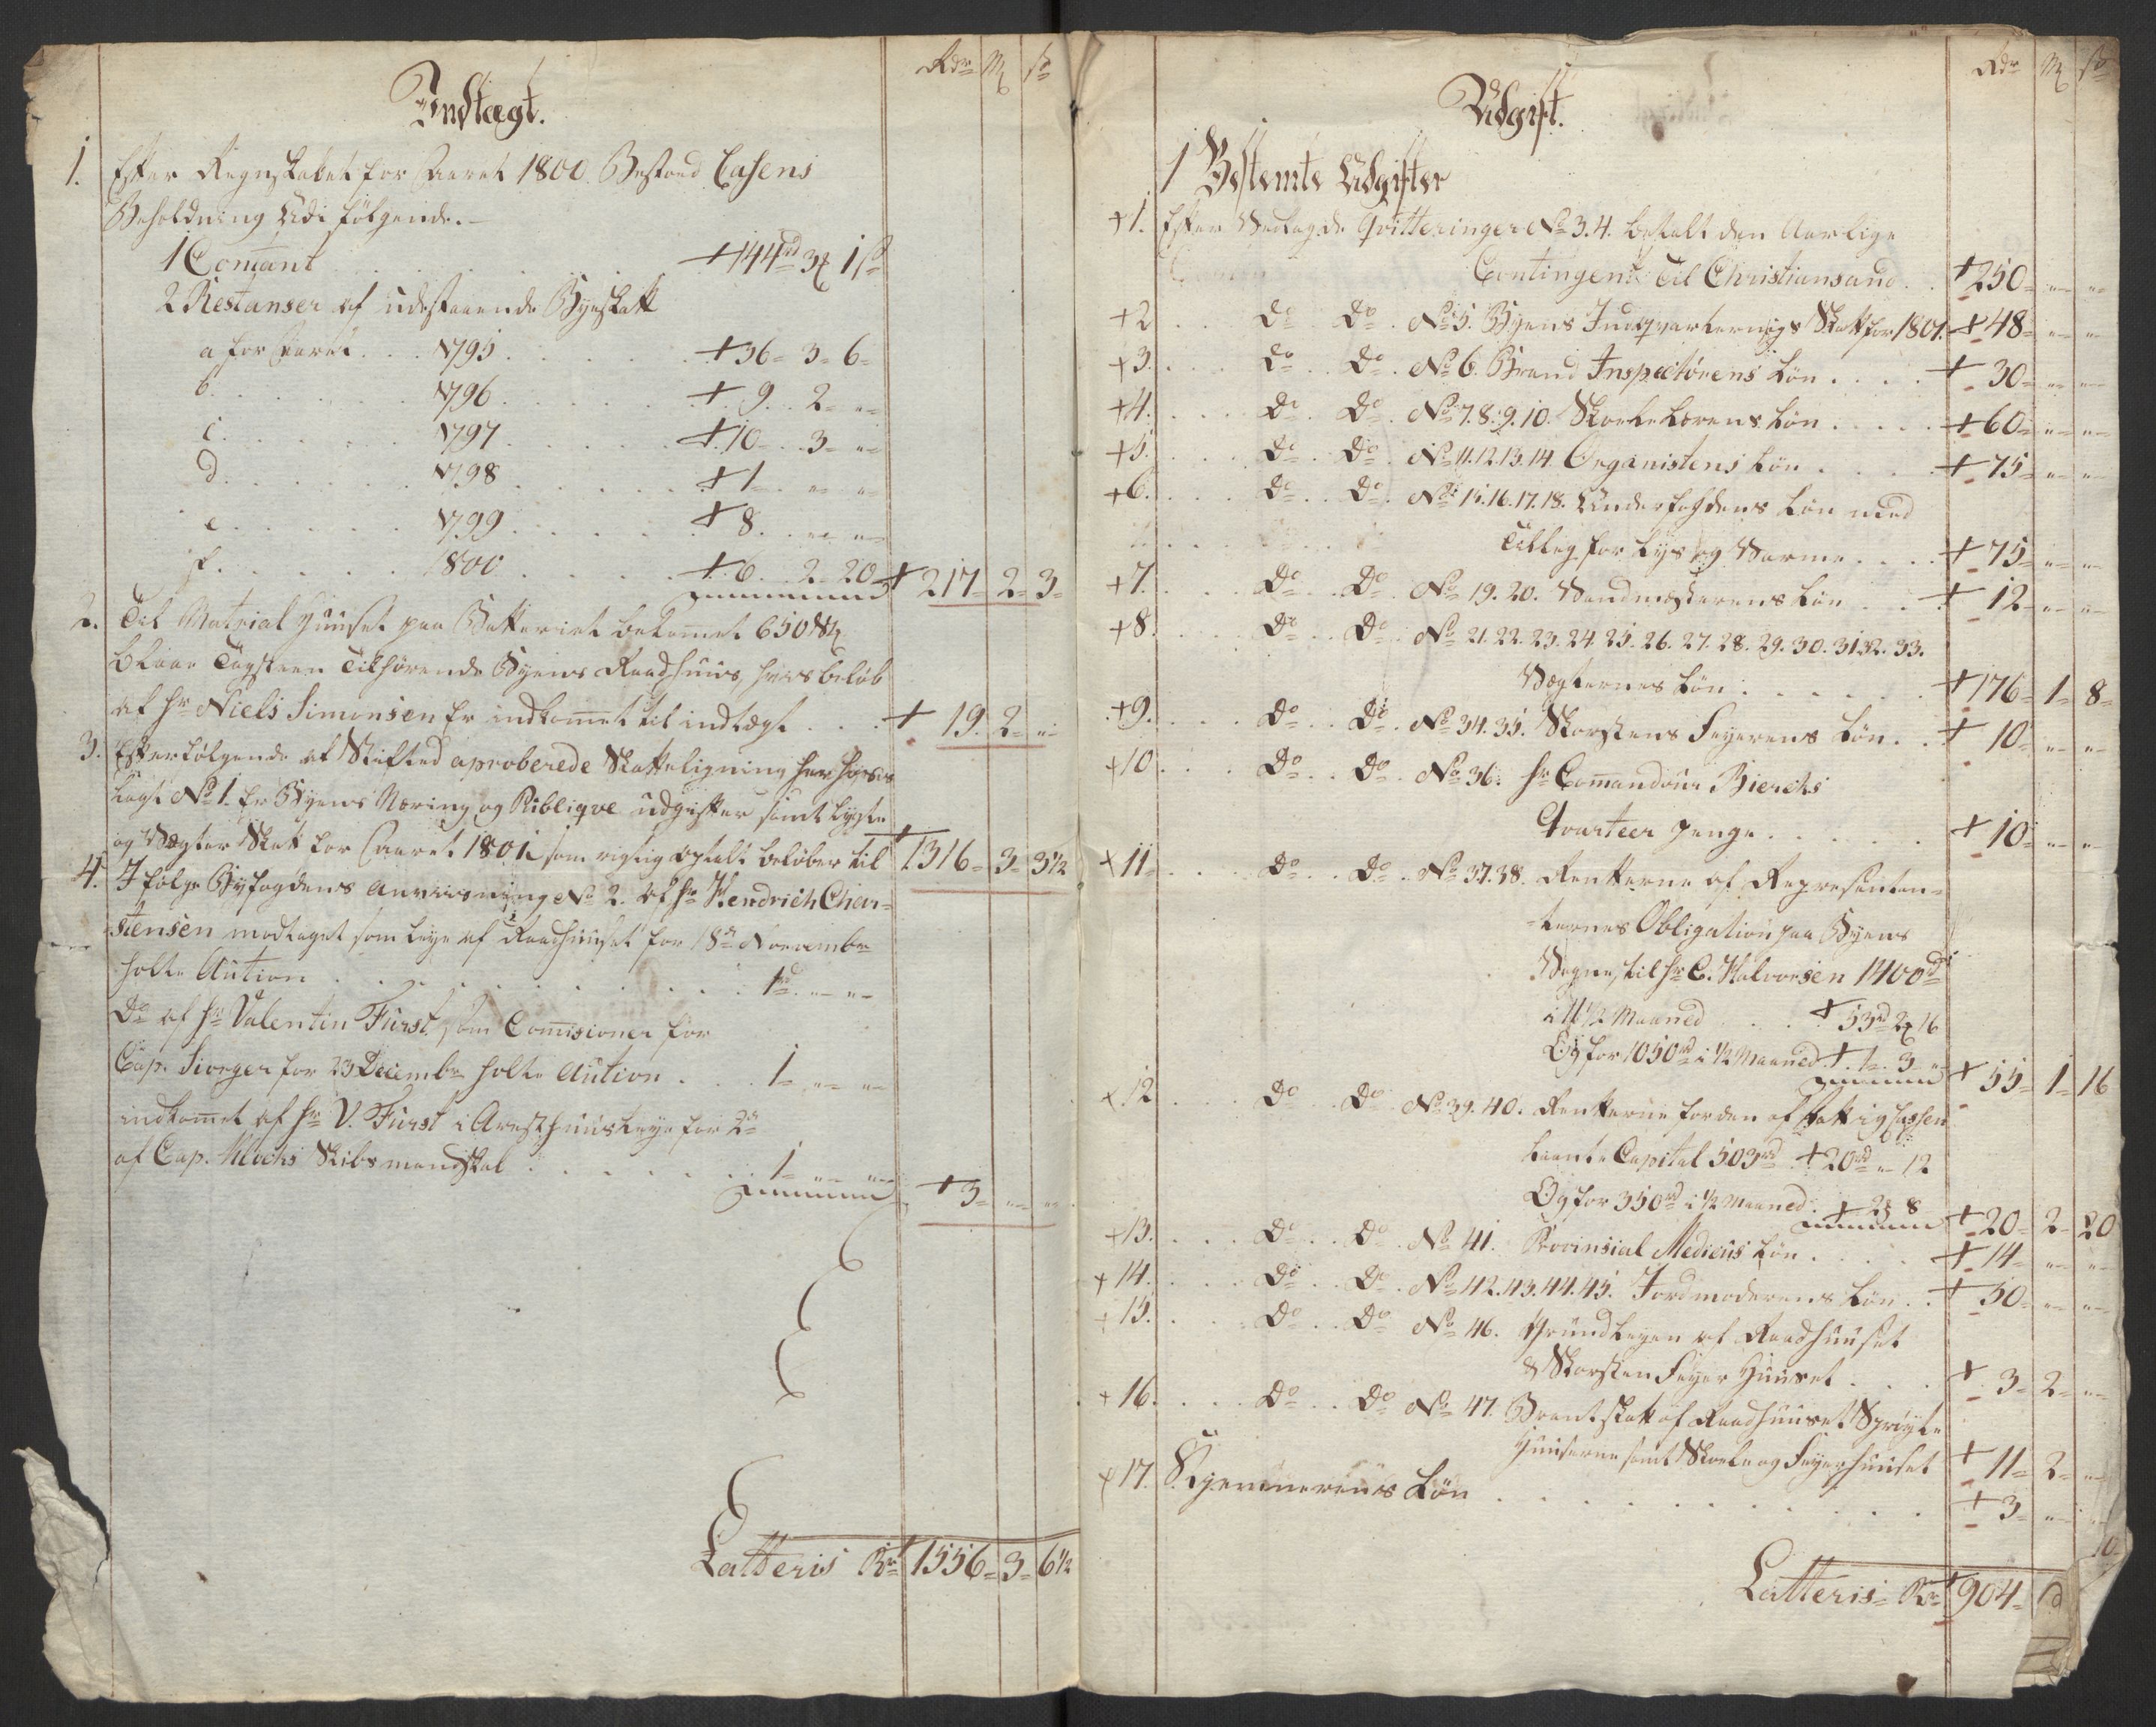 Rdr M ſs
Indtægt.
1. Efter Regnskabet for Aaret 1800. Bestoed Casens
Beholdning Udi følgende.
1 Comant +144rd 3 1 s
2 Restanser af udestaaende Byeskatt
a for Aaret 1795 +36 = 3 = 6 =
b 1796 + 9 2 = "
c 1797 + 10 3 = "
d 1798 + 1 " "
e 1799 + 8 " "
f 1800 + 6 2 20 + 217 = 2 = 3 =
2. Til Matrial Huuset paa Batteriet bekomet 650
blaae Tagsteen Tilhørende Byens Raadhuus, hvis beløb
af Hr Niels Simonsen er indkomet til indtægt + 19. 2 = "
3. Efterfølgende af Stifted aproberede Skatteligning her hosv
lagt No 1. er Byens Næring og Publiqve udgifter samt Lygte
og Vægter Skat for Aaret 1801 som rigtig optalt beløber til + 1316 = 3 = 3 1/2
4. I følge Byfogdens Anviisning No 2. af Hr Hendrich Chri=
stensen modtaget som leye af Raadhuuset for 18de Novembr
holte Aution 1rd " "
Do af Hr Valentin Fürst som Comisioner for
Cap. Siorger for 23 Decembr holte Aution 1 = " "
indkomet af Hr V. Fürst i Aresthuus leye for 2de
af Cap. Skibsmandskab 1 = " "
+ 3 = " "
Latteris Rd 1556 = 3 = 6 1/2
Rdr M ſs
Udgift.
1 Bestemte Udgifter
+1. Efter Vedlagde Qvitteringer No 3.4. betalt den Aarlige
Contingent Til Christiansand + 250 = " "
+2 Do Do No 5. Byens Indqvarterings Skatt for 1801. + 48 = " "
+3. Do Do No 6. Brand Inspectørens Løn + 30 = " "
+4. Do Do No 7.8.9.10. Skoele Lærens Løn + 60 = " "
+5. Do Do No 11.12.13.14. Organistens Løn + 75 = " "
+6. Do Do No 15.16.17.18. Underfogdens Løn med
Tillæg for Lys og Varme + 75 = " "
+7. Do Do No 19.20. Vandmesterens Løn + 12 = " "
+8. Do Do No 21.22.23.24.25.26.27.28.29.30.31.32.33.
Vægternes Løn + 176 = 1 = 8 =
+9. Do Do No 34.35. Skorstens Feyerens Løn + 10 = " "
+10 Do Do No 36. Hr Comandeur Bierchs
Qvarteer Penge + 10 = " "
+11 = Do Do No 37.38. Rentterne af Representan=
=ternes Obligation paa Byens
Vegne, til Hr C. Halvorsen 1400rd
i 11 1/2 Maaned + 53rd 2 16
Og for 1050rd i 1/2 Maaned + 1 = 3 = " + 55 = 1 = 16
+12 Do Do No 39.40. Rentterne for den af Fattig Cassen
laante Capital 503rd + 20rd " 12
Og for 350rd i 1/2 Maaned + 2 8 + 20 = 2 = 20
+13. Do Do No 41. Provinsial Medicus Løn + 14 = " "
+14. Do Do No 42.43.44.45. Jordmoderens Løn + 50 = " "
+15. Do Do No 46. Grundleyen af Raadhuuset
& Skorsten Feyer Huuset + 3 = 2 = "
+16. Do Do No 47. Brantskatt af Raadhuuset Sprøyte
Huuserne samt Skoele og Feyerhuuset + 11 = 2 = "
+17. Kjemnerens Løn + 3 = " "
Latteris = Rd 904 =